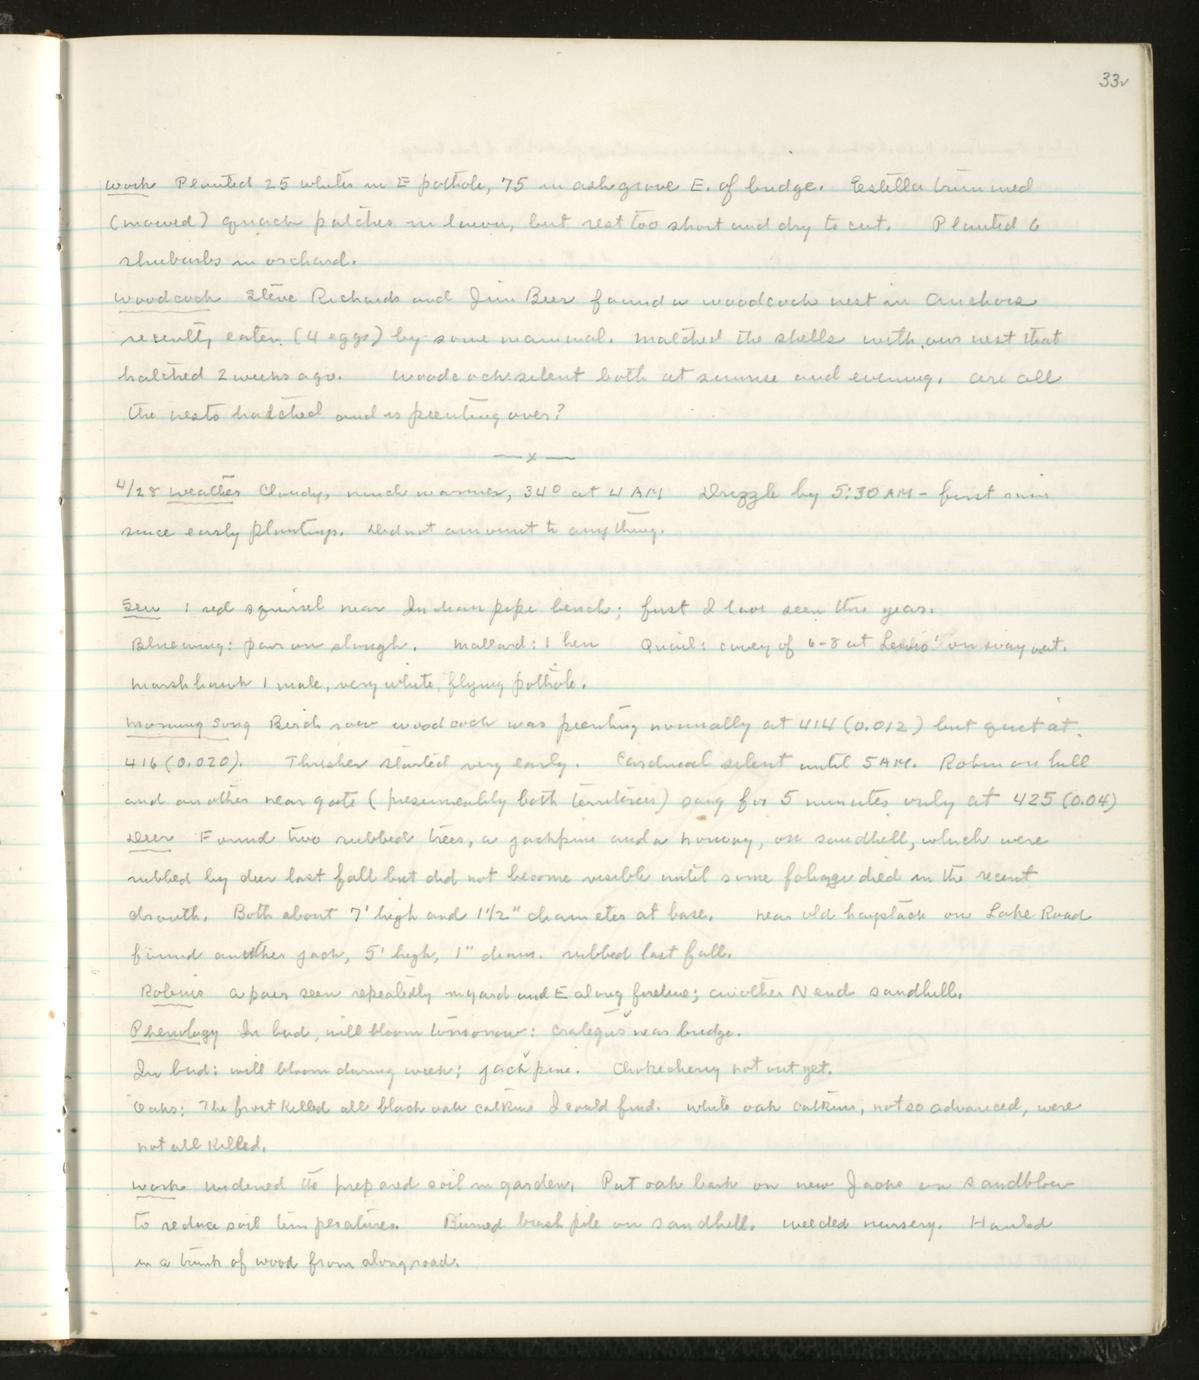 33v
Work Planted 25 whites in E pothole, 75 in ash grove E. of bridge. Estella trimmed
(mowed) quack patches in lawn, but rest too short and dry to cut. Planted 6
rhubarbs in orchard.
Woodcock Steve Richards and Jim Beer found a woodcock nest in Anchors
recently eaten (4 eggs) by some mammal. Matched the shells with our nest that
hatched 2 weeks ago. Woodcock silent both at sunrise and evening. Are all
the nests hatched and is peenting over?
—x—
4/28 Weather Cloudy, much warmer, 34° at 4 AM Drizzle by 5:30 AM - first rain
since early plantings. Did not amount to anything.
Seen 1 red squirrel near Indian pipe bench; first I have seen this year.
Bluewing: pair on slough. Mallard: 1 hen Quail: covey of 6-8 at Lewis' on way out.
Marsh hawk 1 male, very white, flying pothole.
Morning Song Bird row woodcock was peenting normally at 414 (0.012) but quiet at
416 (0.020). Thrasher started very early. Cardinal silent until 5 AM. Robin on hill
and another near gate (presumeably both territories) sang for 5 minutes only at 425 (0.04)
Deer Found two rubbed trees, a jackpine and a norway, on sandhill, which were
rubbed by deer last fall but did not become visible until some foliage died in the recent
drouth. Both about 7' high and 1 1/2" diameter at base. Near old haystack on Lake Road
found another jack, 5' high, 1" diam. rubbed last fall.
Robins a pair seen repeatedly in yard and E along fireline; another N end sandhill.
Phenology In bud, will bloom tomorrow: Crategus near bridge.
In bud: will bloom during week; jack pine. Chokecherry not out yet.
Oaks: The frost killed all black oak catkins I could find. White oak catkins, not so advanced, were
not all killed.
Work widened the prepared soil in garden. Put oak bark on new Jacks on Sandblow
to reduce soil temperatures. Burned brush pile on sandhill. Weeded nursery. Hauled
in a trunk of wood from along road.